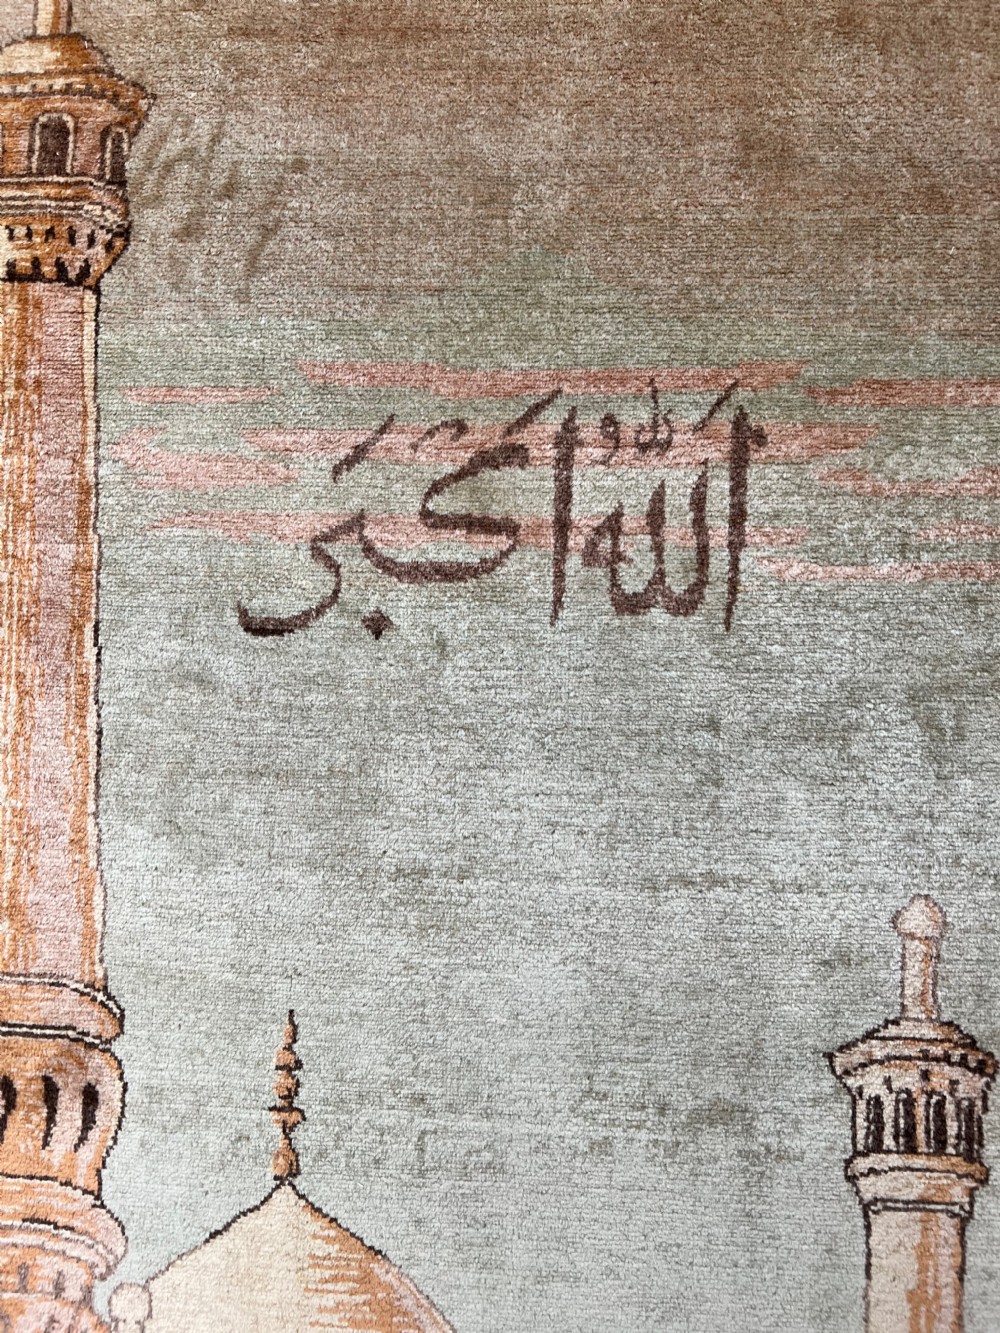 اَللّٰهُ اَكْبَر